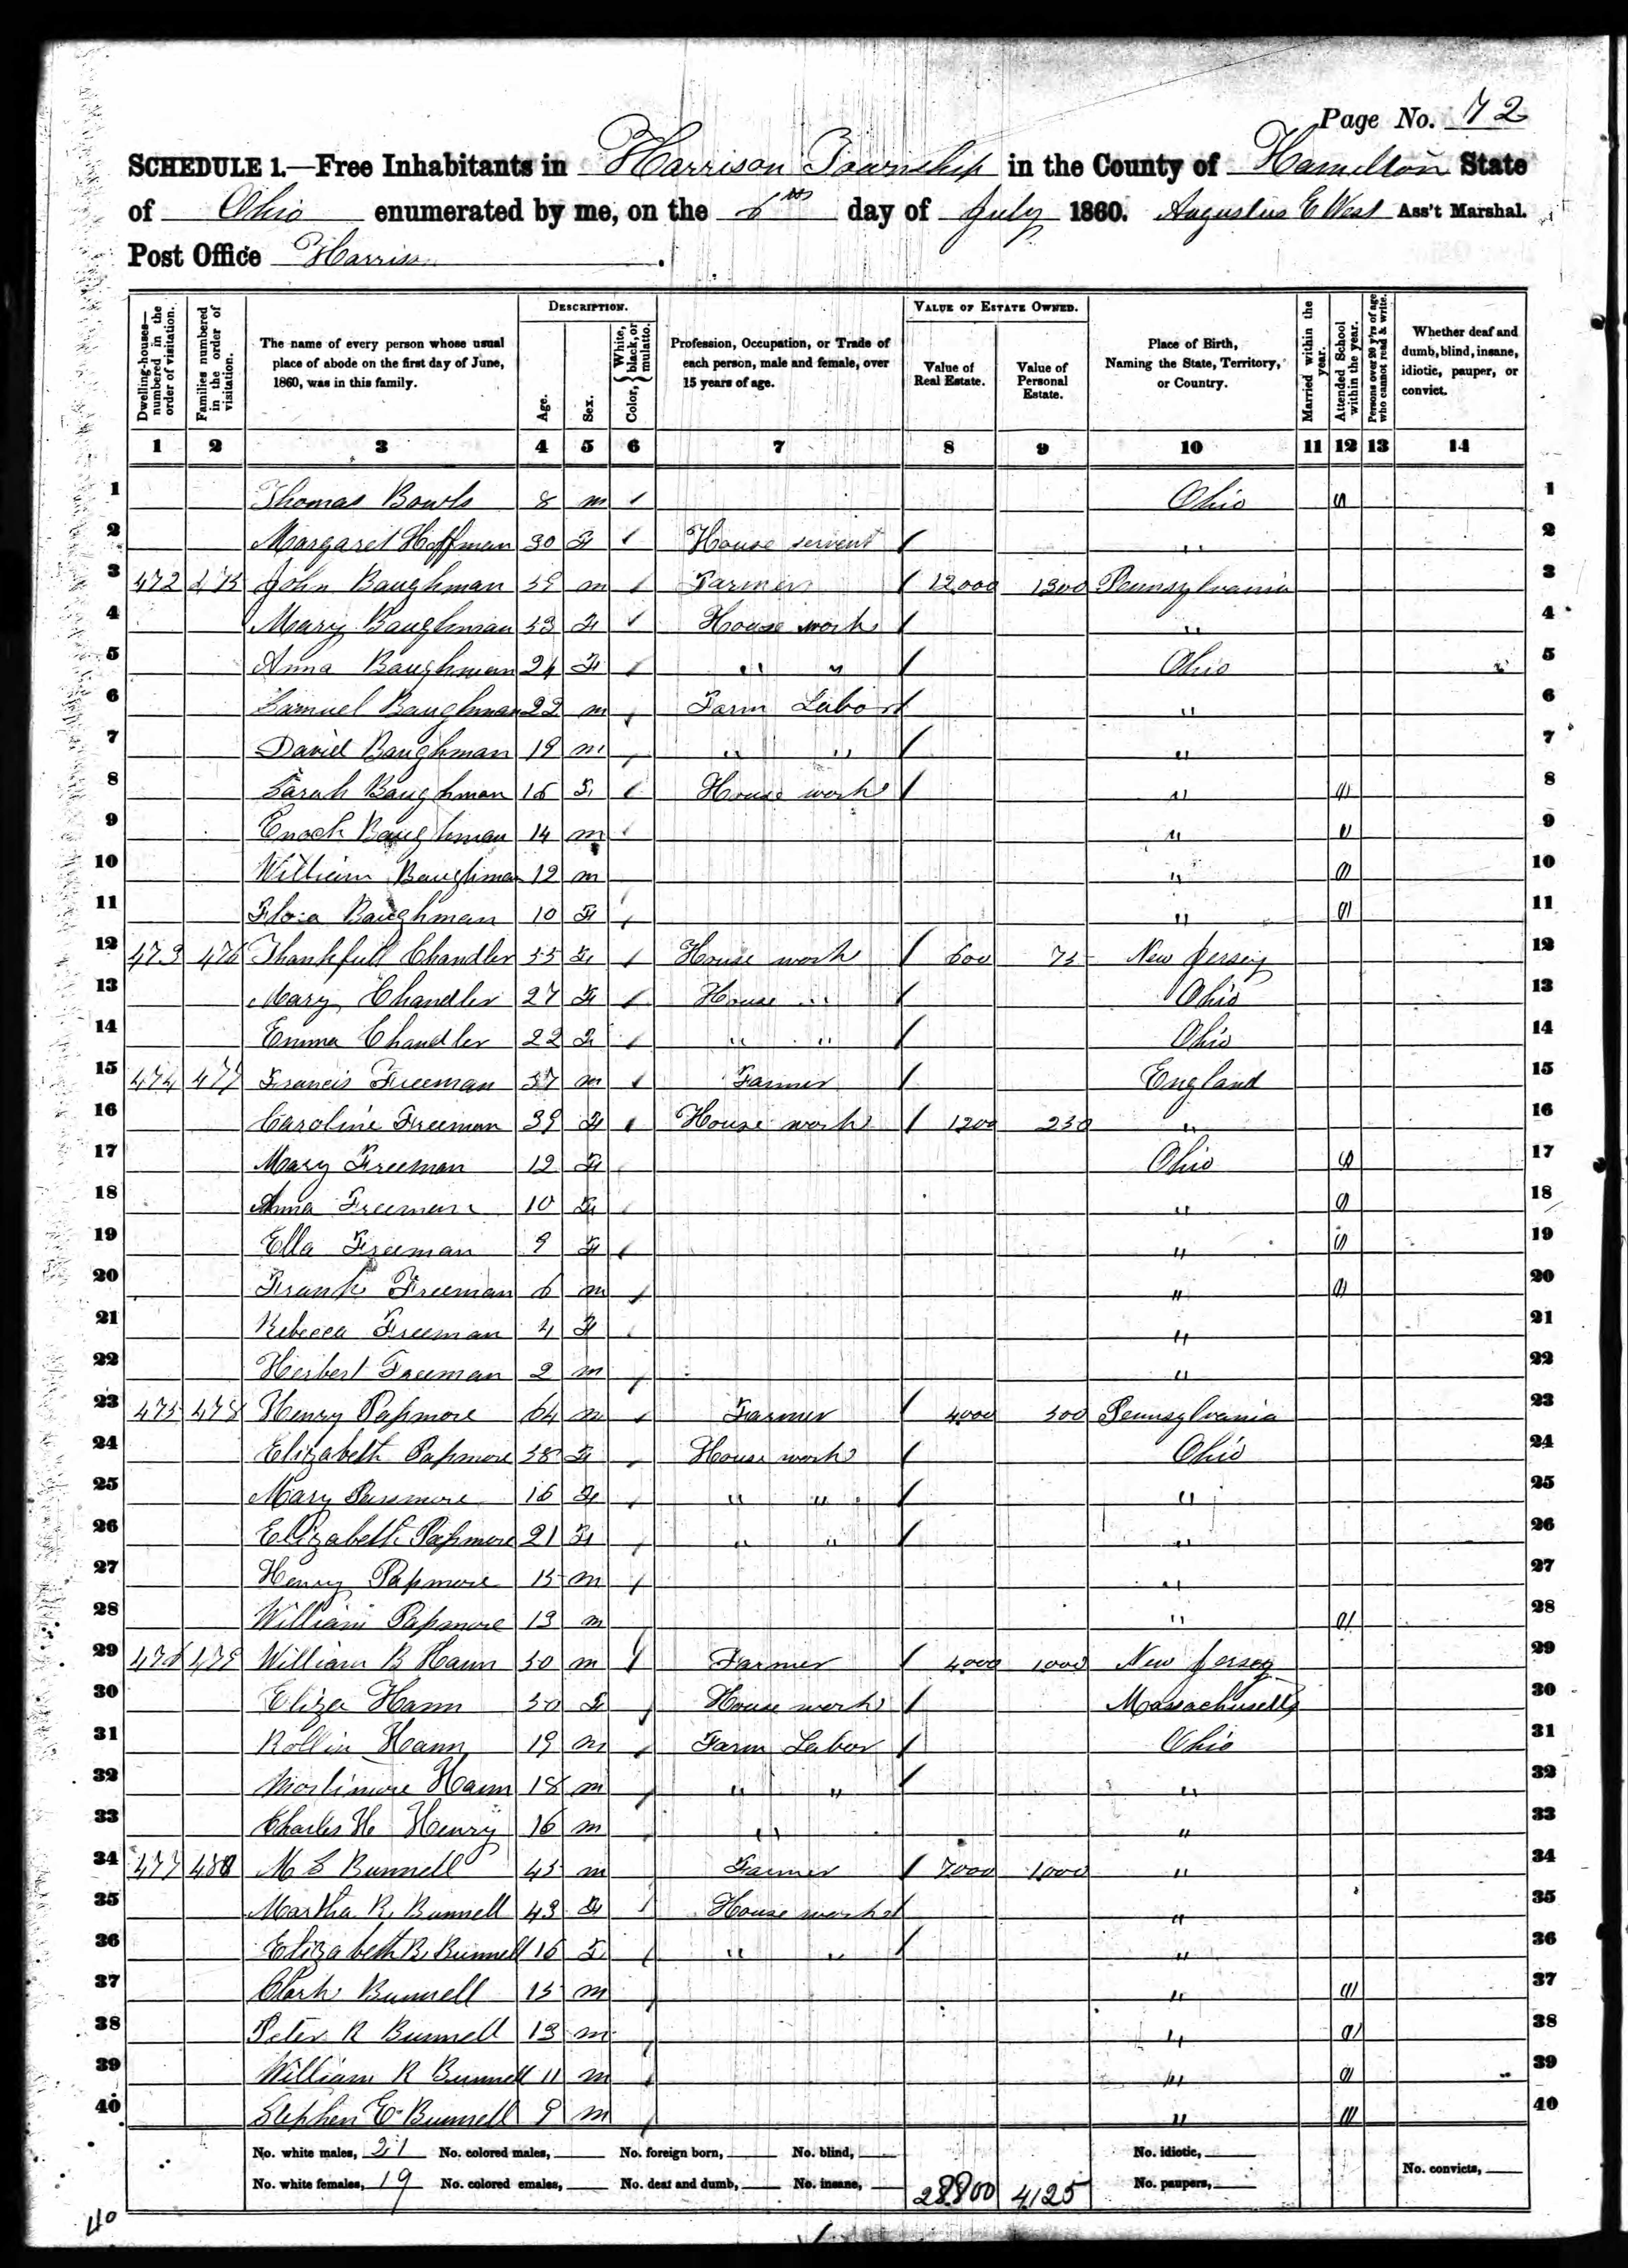 Page No. 72
SCHEDULE 1.—Free Inhabitants in Harrison Township in the County of Hamilton State
of Ohio enumerated by me, on the 6th day of July 1860. Augustus E West Ass't Marshal.
Post Office Harrison.
DESCRIPTION. VALUE OF ESTATE OWNED.
Dwelling-houses—numbered in the order of visitation. Families numbered in the order of visitation. The name of every person whose usual place of abode on the first day of June, 1860, was in this family. Age. Sex. Color, { White, black, or mulatto. Profession, Occupation, or Trade of each person, male and female, over 15 years of age. Value of Real Estate. Value of Personal Estate. Place of Birth, Naming the State, Territory, or Country. Married within the year. Attended School within the year. Persons over 20 y'rs of age who cannot read & write. Whether deaf and dumb, blind, insane, idiotic, pauper, or convict.
1 2 3 4 5 6 7 8 9 10 11 12 13 14
1 Thomas Bowls 8 m / Ohio 1
2 Margaret Hoffman 30 F / House servent / " 2
3 472 John Baughman m / Farmer / 12,000 1300 Pennsylvania 3
4 Mary Baughman 53 F / House work / " 4
5 Anna Baughman 24 F / " " / Ohio 5
6 Samuel Baughman 22 m / Farm Labor / " 6
7 David Baughman 19 m / " " / " 7
8 Sarah Baughman 16 F / House work / " 8
9 Enoch Baughman 14 m / " 9
10 William Baughman 12 m " 10
11 Flora Baughman 10 F / " 11
12 473 476 Thankfull Chandler 55 F / House work / 600 75 New Jersey 12
13 Mary Chandler 27 F / House " / Ohio 13
14 Emma Chandler 22 F / " " / Ohio 14
15 474 477 Francis Freeman 37 m / Farmer / England 15
16 Caroline Freeman 39 F / House work / 1200 250 " 16
17 Mary Freeman 12 F Ohio 17
18 Anna Freeman 10 F / " 18
19 Ella Freeman 9 F / " 19
20 Frank Freeman 6 m / " 20
21 Rebecca Freeman 4 F / " 21
22 Herbert Freeman 2 m / " 22
23 475 478 Henry Paſsmore 64 m / Farmer / 4000 500 Pennsylvania 23
24 Elizabeth Paſsmore 58 F / House work / Ohio 24
25 Mary Passmore 16 F / " " / " 25
26 Elizabeth Paſsmore 21 F / " " / " 26
27 Henry Paſsmore 15 m / " 27
28 William Paſsmore 13 m " 28
29 476 479 William B Hann 50 m / Farmer / 4000 1000 New Jersey 29
30 Eliza Hann 50 F / House work / Massachusetts 30
31 Rollin Hann 19 m / Farm Labor / Ohio 31
32 Mortimore Hann 18 m / " " / " 32
33 Charles H Henry 16 m / " " 33
34 477 480 M Bunnell 45 m Farmer / 7000 1000 " 34
35 Martha R. Bunnell 43 F / House work / " 35
36 Elizabeth B. Bunnell 16 F / " " / " 36
37 Clark Bunnell 15 m / " 37
38 Peter R Bunnell 13 m / " 38
39 William R Bunnell 11 m / " 39
40 Stephen E. Bunnell 9 m / " 40
No. white males, 21 No. colored males, No. foreign born, No. blind, No. idiotic,
No. white females, 19 No. colored emales, No. deaf and dumb, No. insane, 28800 4125 No. paupers, No. convicts,
40